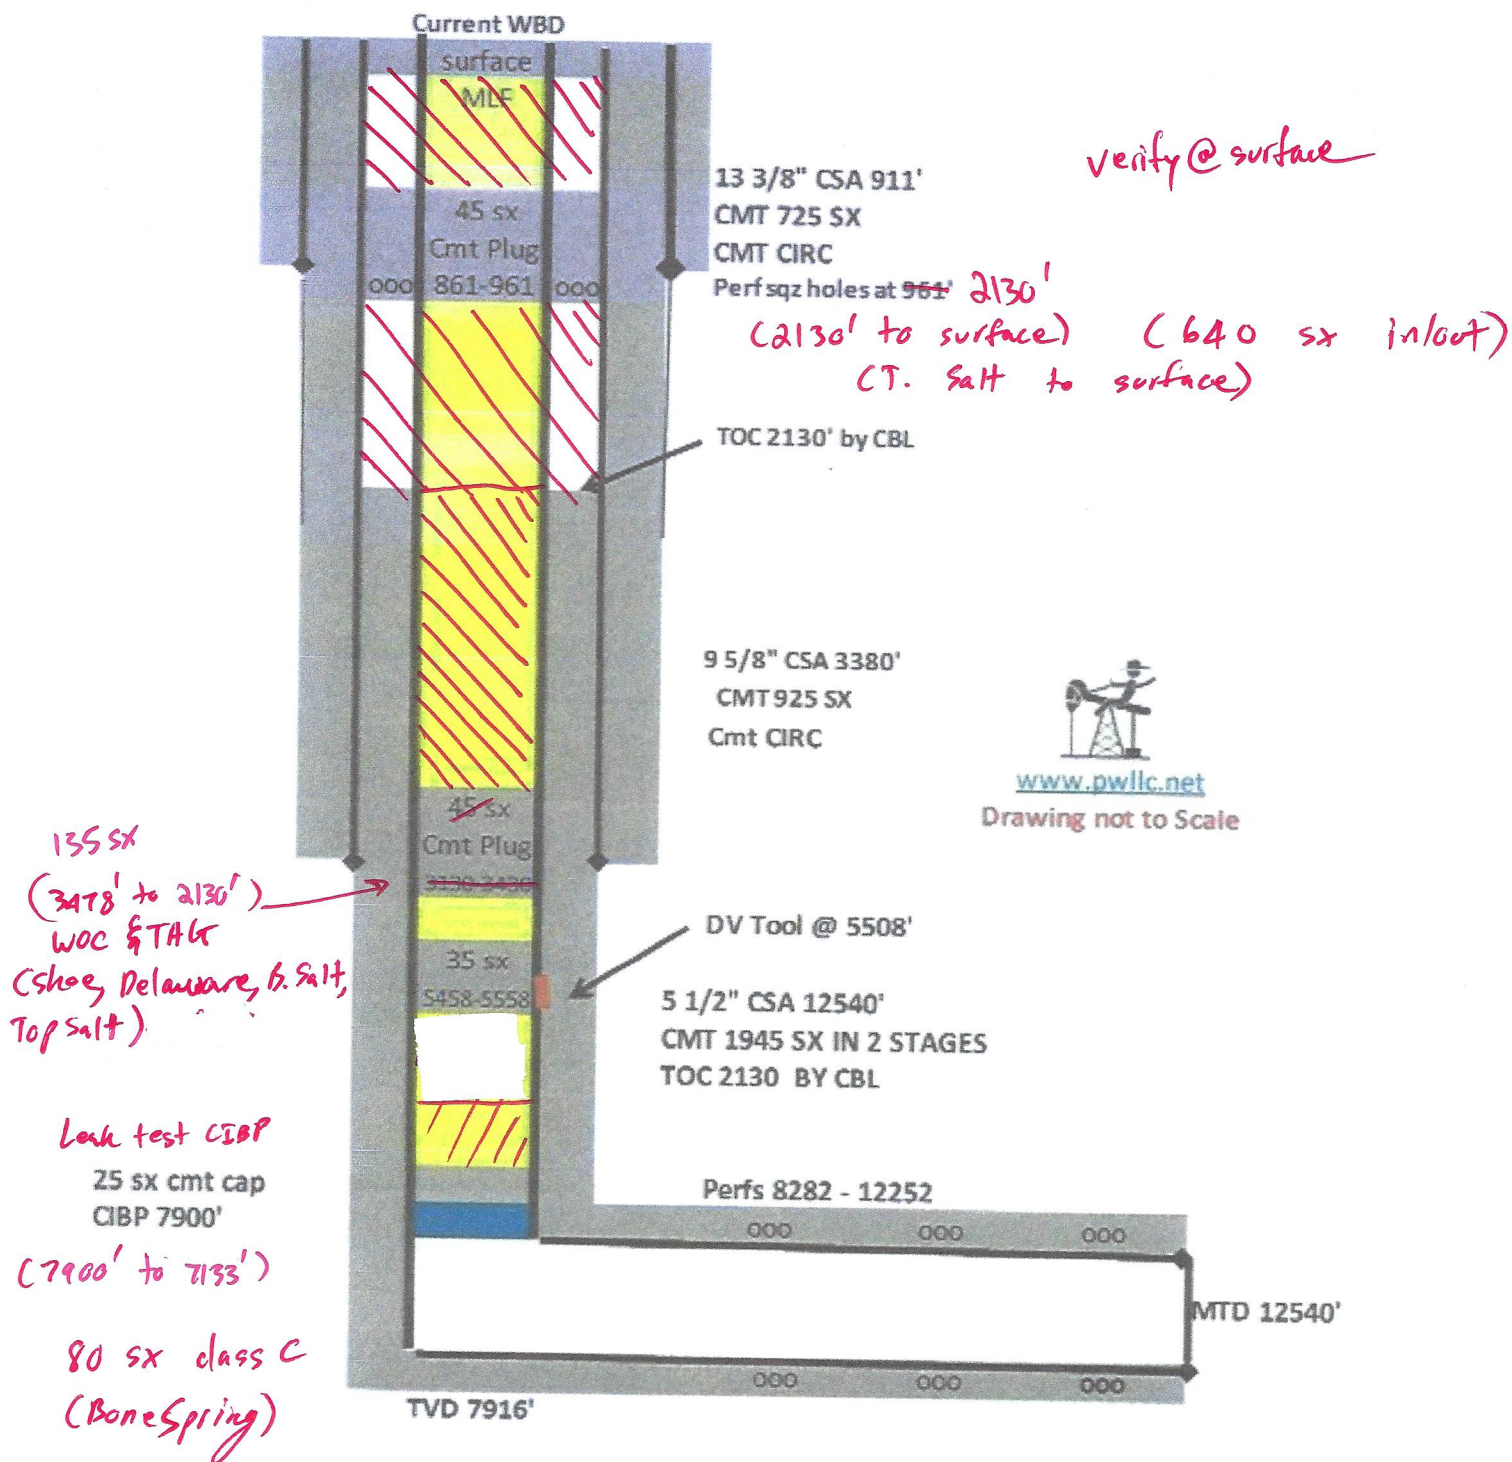 Current WBD
surface
MLF
verify @ surface
13 3/8" CSA 911'
CMT 725 SX
CMT CIRC
Perf sqz holes at 961' 2130'
(2130' to surface) (640 sx in/out)
(T. Salt to surface)
45 sx
Cmt Plug
000 861-961 000
TOC 2130' by CBL
9 5/8" CSA 3380'
CMT 925 SX
Cmt CIRC
www.pwllc.net
Drawing not to Scale
45 sx
Cmt Plug
135 sx
(3478' to 2130')
WOC & TAG
(shoe, Delaware, B. Salt,
Top Salt)
DV Tool @ 5508'
35 sx
5458-5558
5 1/2" CSA 12540'
CMT 1945 SX IN 2 STAGES
TOC 2130 BY CBL
Leak test CIBP
25 sx cmt cap
CIBP 7900'
(7900' to 7133')
80 sx class C
(Bone Spring)
Perfs 8282 - 12252
000 000 000
MTD 12540'
000 000 000
TVD 7916'